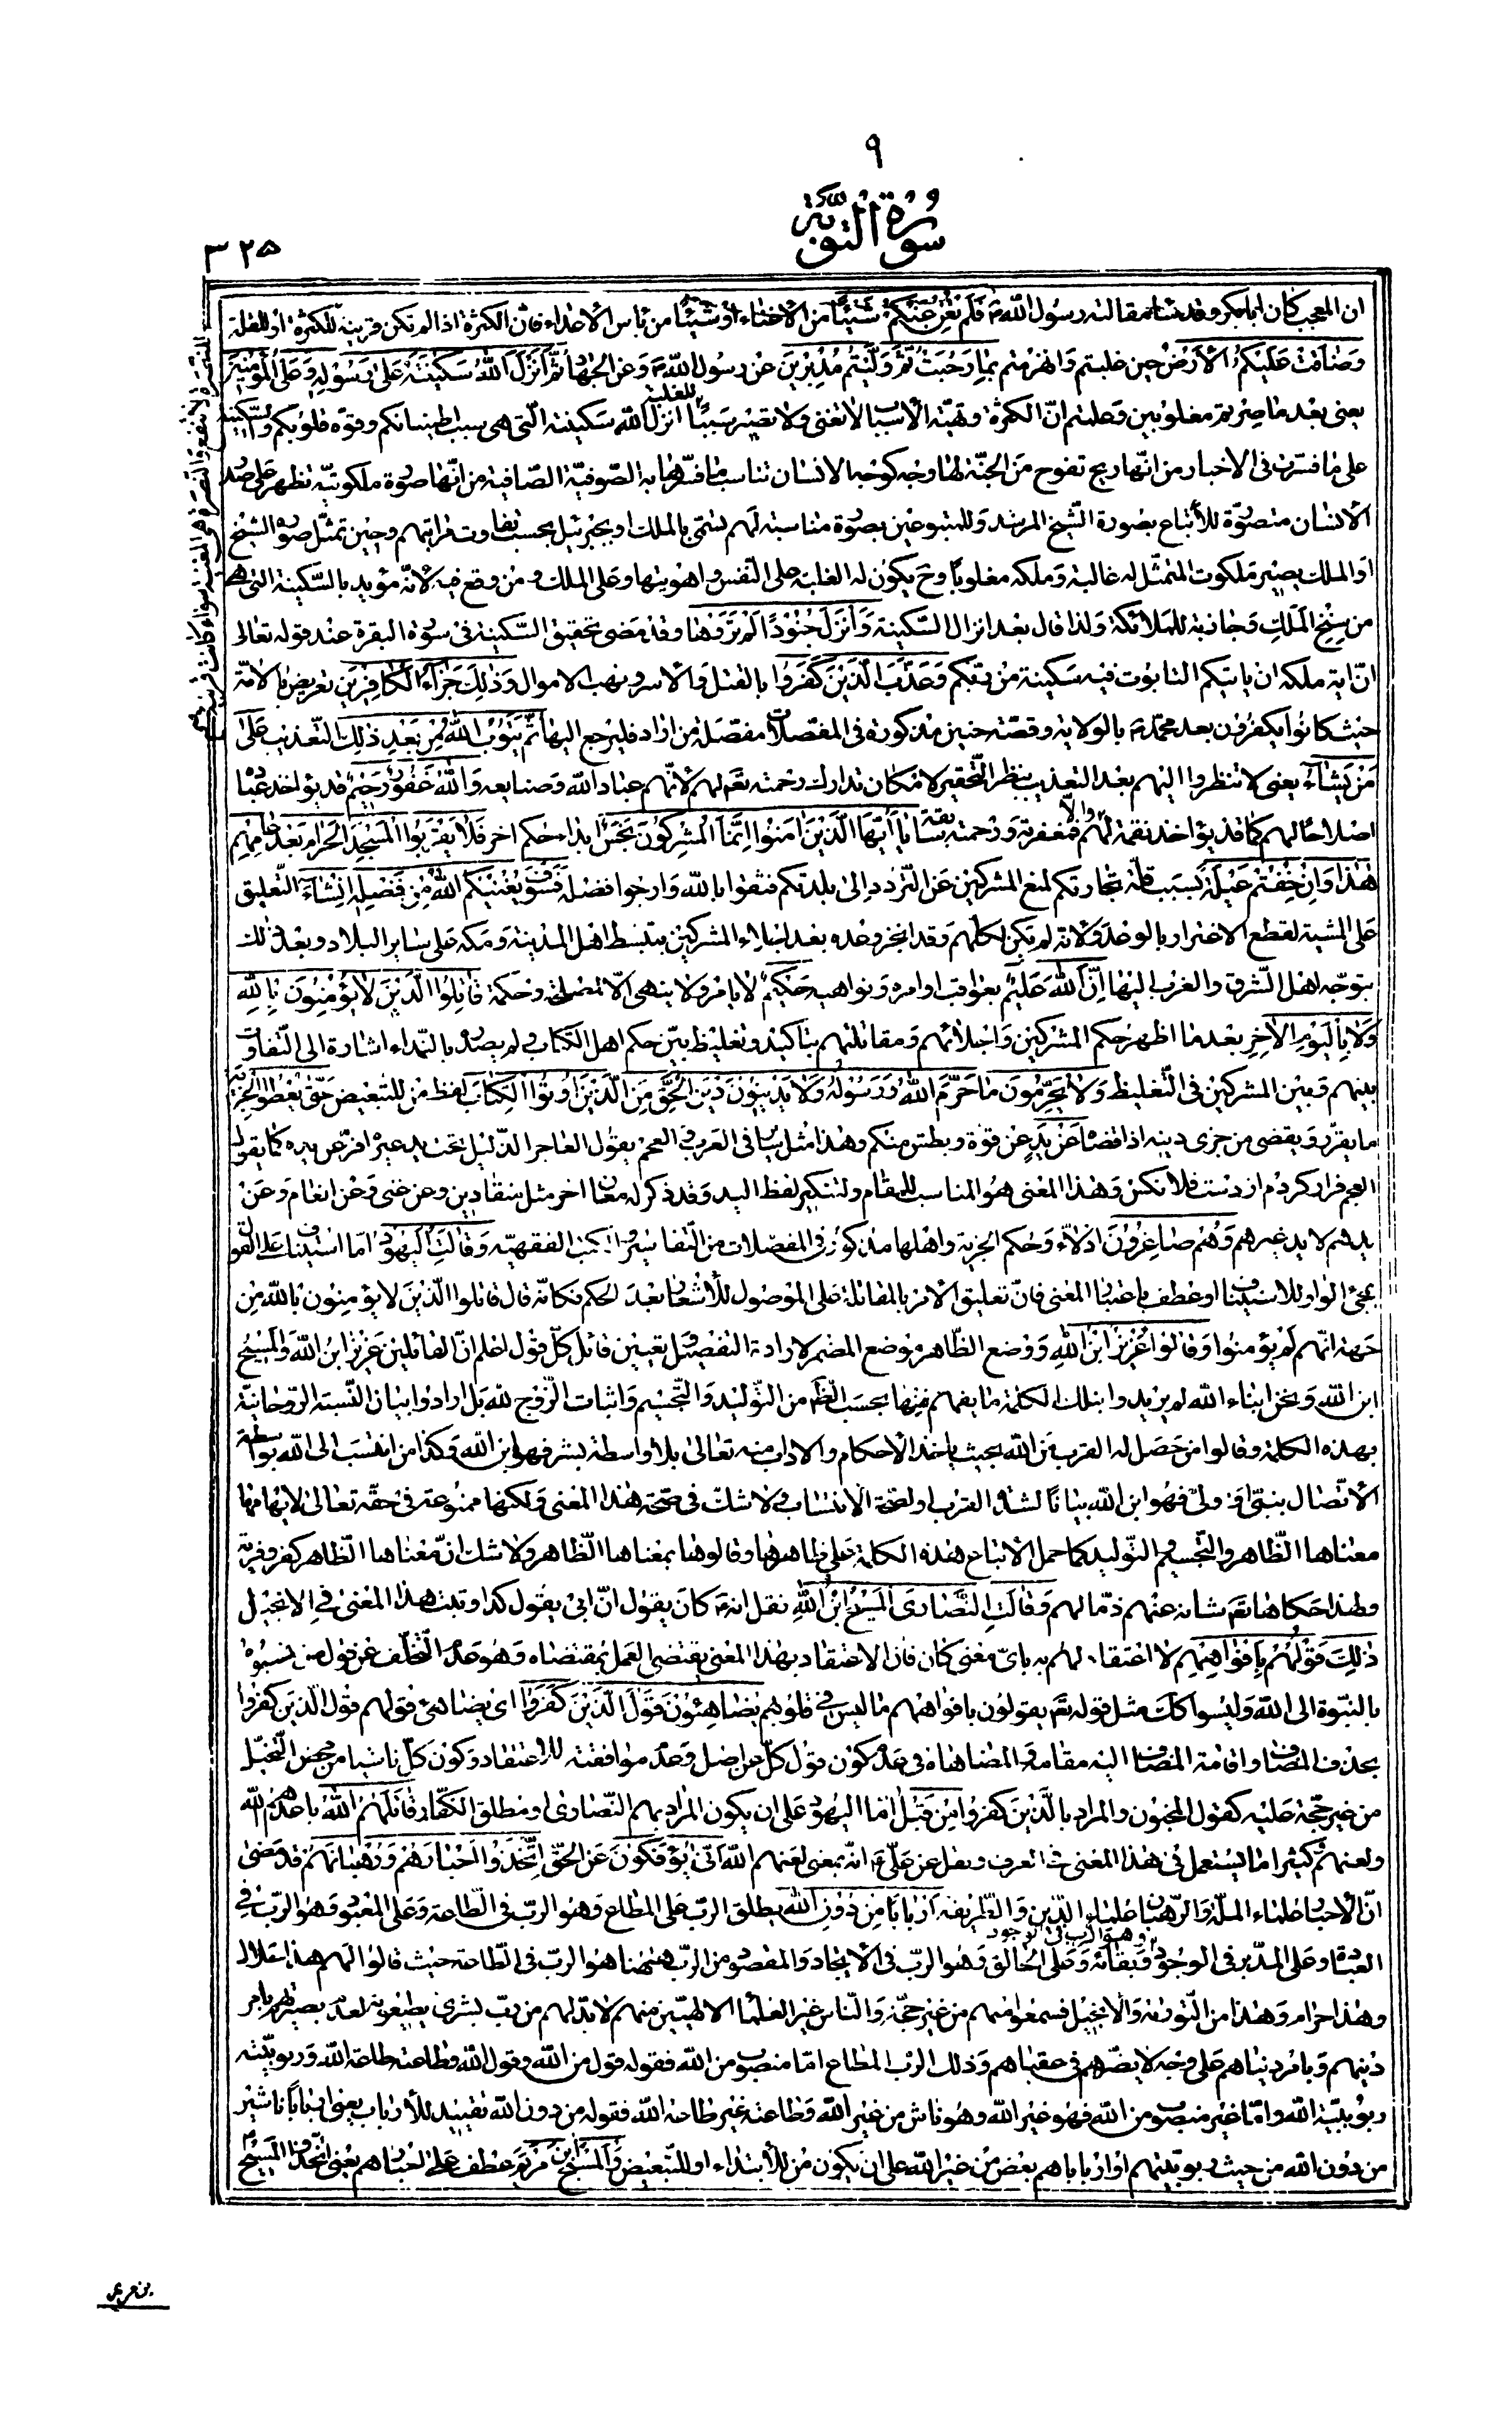 ٩
سورة التوبة
٣٢٥
ان المعجب كان ابابكر وقد ساء مقالته رسول الله ص فَلَمْ تُغْنِ عَنْكُمْ شَيْئًا من الاغناء او شَيْئًا من بأس الاعداء فان الكثرة اذا لم تكن قرينة للكثرة او للقلة
وَضَاقَتْ عَلَيْكُمُ الْأَرْضُ حين غلبتم وانهزمتم بِمَا رَحُبَتْ ثُمَّ وَلَّيْتُمْ مُدْبِرِينَ عن رسول الله ص وعن الجهاد ثُمَّ أَنْزَلَ اللهُ سَكِينَتَهُ عَلَى رَسُولِهِ وَعَلَى الْمُؤْمِنِينَ
يعنى بعد ما صرتم مغلوبين وعلمتم انّ الكثرة وتهيّة الاسباب لا تغنى ولا تصير سببًا للغلبة انزل الله سكينته الّتى هى سبب اطمينانكم وقوّة قلوبكم والسّكينة
على ما فسّرت فى الاخبار من انّها ريح تفوح من الجنّة لها وجه كوجه الانسان تناسب ما فسّرها به الصّوفيّة الصّافية من انّها صورة ملكوتيّة تظهر على صدر
الانسان متصوّرة للأتباع بصورة الشّيخ المرشد وللمتبوعين بصورة مناسبة لهم تسمّى بالملك او بجبرئيل بحسب تفاوت مراتبهم وحين تمثّل صورة الشيخ
او الملك يصير ملكوت المتمثّل له غالبة وملكه مغلوبًا وح يكون له الغلبة على النّفس واهويتها وعلى الملك ومن وقع فيه لانّه مؤيد بالسّكينة التى هى
من سنخ الملك وجاذبة للملائكة ولذا قال بعد انزال السّكينة وَأَنْزَلَ جُنُودًا لَمْ تَرَوْهَا وقد مضى تحقيق السّكينة فى سورة البقرة عند قوله تعالى
انّ اية ملكه ان ياتيكم التابوت فيه سكينة من ربّكم وَعَذَّبَ الَّذِينَ كَفَرُوا بالقتل والاسر ونهب الاموال وَذَلِكَ جَزَاءُ الْكَافِرِينَ تعريض بالامّة
حيث كانوا يكفرون بعد محمّد ص بالولاية وقصّة حنين مذكورة فى المفصّلات مفصّلة من اراد فليرجع اليها ثُمَّ يَتُوبُ اللهُ مِنْ بَعْدِ ذَلِكَ التّعذيب عَلَى
مَنْ يَشَاءُ يعنى لا تنظروا اليهم بعد التعذيب بنظر التّحقير لامكان تدارك رحمته تعم لهم لانّهم عباد الله وصنايعه وَاللهُ غَفُورٌ رَحِيمٌ قد يؤاخذ عباده
اصلاحًا لهم كما قد يؤاخذ نقمة لهم والّا فمغفرته ورحمته سابقة يَا أَيُّهَا الَّذِينَ آمَنُوا إِنَّمَا الْمُشْرِكُونَ نَجَسٌ ابتداء حكم اخر فَلَا يَقْرَبُوا الْمَسْجِدَ الْحَرَامَ بَعْدَ عَامِهِمْ
هَذَا وَإِنْ خِفْتُمْ عَيْلَةً بسبب قلّة تجارتكم لمنع المشركين عن التّردد الى بلدتكم فثقوا بالله وارجوا فضله فَسَوْفَ يُغْنِيكُمُ اللهُ مِنْ فَضْلِهِ إِنْ شَاءَ التعليق
على المشيّة لقطع الاغترار بالوعد ولانّه لم يكن لكلّهم وقد انجز وعده بعد اجلاء المشركين بتبسّط اهل المدينة ومكّة على ساير البلاد وبعد ذلك
بتوجّه اهل الشّرق والغرب اليها إِنَّ اللهَ عَلِيمٌ بعواقب اوامره ونواهيه حَكِيمٌ لا يامر ولا ينهى الّا لمصلحة وحكمة قَاتِلُوا الَّذِينَ لَا يُؤْمِنُونَ بِاللهِ
وَلَا بِالْيَوْمِ الْآخِرِ بعد ما اظهر حكم المشركين واجلائهم ومقاتلتهم بتاكيد وتغليظ بيّن حكم اهل الكتاب ولم يصدّر بالنّداء اشارة الى التّفاوت
بينهم وبين المشركين فى التّغليظ وَلَا يُحَرِّمُونَ مَا حَرَّمَ اللهُ وَرَسُولُهُ وَلَا يَدِينُونَ دِينَ الْحَقِّ مِنَ الَّذِينَ أُوتُوا الْكِتَابَ لفظ من للتّبعيض حَتَّى يُعْطُوا الْجِزْيَةَ
ما يقرّر ويقضى من جزى دينه اذا قضاه عَنْ يَدٍ عن قوّة وبطش منكم وهذا مثل ساير فى العرب والعجم يقول العاجز الذّليل تحت يد غيره افرّ عن يده كما يقول
العجم فرار كردم از دست فلان كس وهذا المعنى هو المناسب للمقام ولتنكير لفظ اليد وقد ذكر له معان اخر مثل منقادين وعن غنى وعن انعام وعن
يدهم لا يد غيرهم وَهُمْ صَاغِرُونَ اذلّاء وحكم الجزية واهلها مذكور فى المفصّلات من التّفاسير والكتب الفقهيّة وَقَالَتِ الْيَهُودُ امّا استيناف على القول
بمجئ الواو للاستيناف او عطف باعتبار المعنى فانّ تعليق الامر بالمقاتلة على الموصول للأشعار بعلّة الحكم فكانّه قال قاتلوا الّذين لا يؤمنون بالله من
جهة انّهم لم يؤمنوا وقالوا عُزَيْرٌ ابْنُ اللهِ ووضع الظّاهر موضع المضمر لارادة التفصيل بتعيين قائل كلّ قول اعلم انّ القائلين عزير ابن الله والمسيح
ابن الله ونحن ابناء الله لم يريدوا بتلك الكلمة ما يفهم منها بحسب الظّم من التّوليد والتّجسيم واثبات الزّوج لله بل ارادوا بيان النّسبة الرّوحانيّة
بهذه الكلمة وقالوا من حصل له القرب من الله بحيث ياخذ الأحكام والاداب منه تعالى بلا واسطة بشر فهو ابن الله وكذا من انتسب الى الله بواسطة
الاتّصال بنبىّ او ولىّ فهو ابن الله بيانًا لشدّة القرب او لصحّة الانتساب ولا شكّ فى صحّة هذا المعنى ولكنّها ممنوعة فى حقّه تعالى لايهامها
معناها الظّاهر والتّجسيم والتّوليد كما حمل الاتباع هذه الكلمة على ظاهرها وقالوها بمعناها الظّاهر ولا شك انّ معناها الظّاهر كفر وفرية
ولهذا حكاها تعم شانه عنهم ذمّا لهم وَقَالَتِ النَّصَارَى الْمَسِيحُ ابْنُ اللهِ نقل انه ع كان يقول انّ ابى يقول كذا وثبت هذا المعنى فى الانجيل
ذَلِكَ قَوْلُهُمْ بِأَفْوَاهِهِمْ لا اعتقاد لهم به باىّ معنى كان فان الاعتقاد بهذا المعنى يقتضى العمل بمقتضاه وهو عدم التّخلّف عن قول من نسبوه
بالنبوّة الى الله وليسوا كك مثل قوله تعم يقولون بافواههم ما ليس فى قلوبهم يُضَاهِئُونَ قَوْلَ الَّذِينَ كَفَرُوا اى يضاهى قولهم قول الّذين كفروا
بحذف المضاف واقامة المضاف اليه مقامه والمضاهاة فى عدم كون قول كلّ عن اصل وعدم موافقته للاعتقاد وكون كلّ ناشيا من محض التّخيّل
من غير حجّة عليه كقول المجنون والمراد بالّذين كفروا مِنْ قَبْلُ امّا اليهود على ان يكون المراد بهم النّصارى او مطلق الكفّار قَاتَلَهُمُ اللهُ باعدهم الله
ولعنهم كثيرا ما يستعمل فى هذا المعنى فى العرف ونقل عن علىّ ع انّه بمعنى لعنهم الله أَنَّى يُؤْفَكُونَ عن الحقّ اتَّخَذُوا أَحْبَارَهُمْ وَرُهْبَانَهُمْ قد مضى
انّ الأحبار علماء الملّة والرّهبان علماء الدّين والطّريقة أَرْبَابًا مِنْ دُونِ اللهِ يطلق الربّ على المطاع وهو الربّ فى الطّاعة وعلى المعبود وهو الربّ فى
العبادة وعلى المدّبر فى الوجود وبقائه وهو الرّب فى الوجود وعلى الخالق وهو الربّ فى الأيجاد والمقصود من الربّ ههنا هو الربّ فى الطّاعة حيث قالوا لهم هذا حلال
وهذا حرام وهذا من التّورٰية والانجيل فسمعوا منهم من غير حجّة والنّاس غير العلماء الالهيّين منهم لا بدّ لهم من ربّ بشرىّ يطيعونه
دينهم وبامر دنياهم على وجه لا يضرّهم فى عقباهم وذلك الربّ المطاع امّا منصوب من الله فقوله قول من الله وقول الله وطاعته طاعة الله وربوبيّته
ربوبيّة الله وامّا غير منصوب من الله فهو غير الله وهو ناش من غير الله وطاعته غير طاعة الله فقوله من دون الله تقييد للأرباب يعنى اربابًا ناشئين
من دون الله من حيث ربوبيّتهم او اربابا هم بعض من غير الله على ان يكون من للأبتداء او للتّبعيض وَالْمَسِيحَ ابْنَ مَرْيَمَ عطف على احبارهم يعنى اتّخذوا المسيح
بن مريم